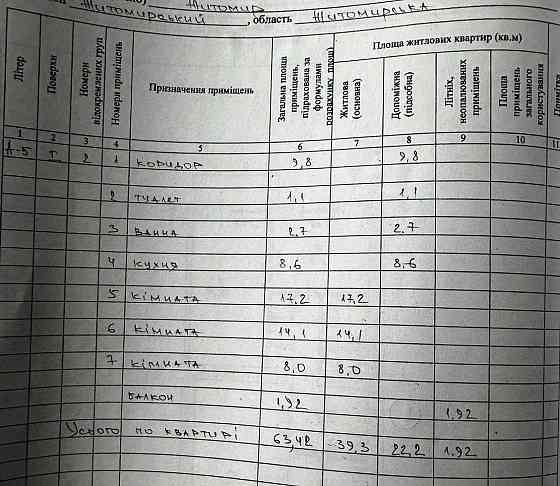 Житомир
Житомирський , область Житомирська
Літер
Поверхи
Номери відокремлених груп
Номери приміщень
Призначення приміщень
Загальна площа приміщень, підрахована за формулами розрахунку площ
Площа житлових квартир (кв.м)
Житлова (основна)
Допоміжна (підсобна)
Літніх, неопалюваних приміщень
Площа приміщень загального користування
1 2 3 4 5 6 7 8 9 10 11
А-5 1 2 1 коридор 9,8 9,8
2 туалет 1,1 1,1
3 ванна 2,7 2.7
4 кухня 8,6 8,6
5 кімната 17,2 17,2
6 кімната 14,1 14,1
7 кімната 8,0 8,0
балкон 1,92 1,92
Усього по квартирі 63,42 39,3 22,2 1.92